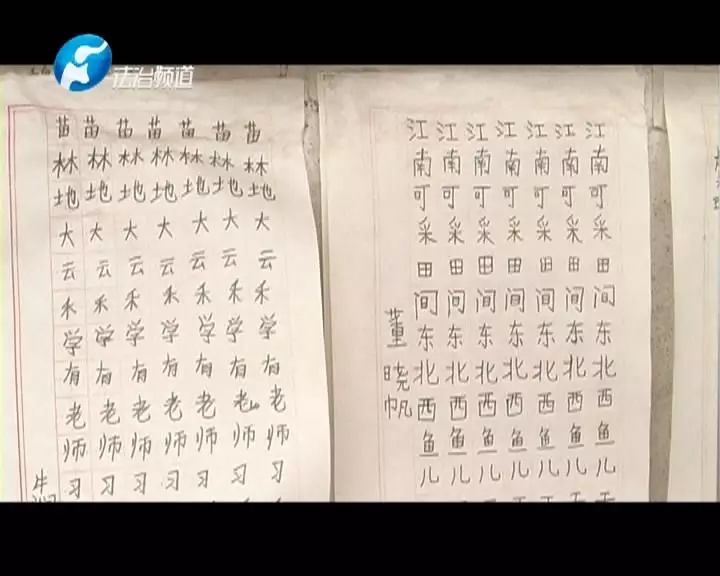 法治频道
苗苗苗苗苗苗苗
林林林林林林林
地地地地地地地
大大大大大大大
云云云云云云云
禾禾禾禾禾禾禾
学学学学学学学
有有有有有有有
老老老老老老老
师师师师师师师
习习习习习习习
牛
江江江江江江江
南南南南南南南
可可可可可可可
采采采采采采采
田田田田田田田
间间间间间间间
东东东东东东东
北北北北北北北
西西西西西西西
鱼鱼鱼鱼鱼鱼鱼
儿儿儿儿儿儿儿
董晓帆